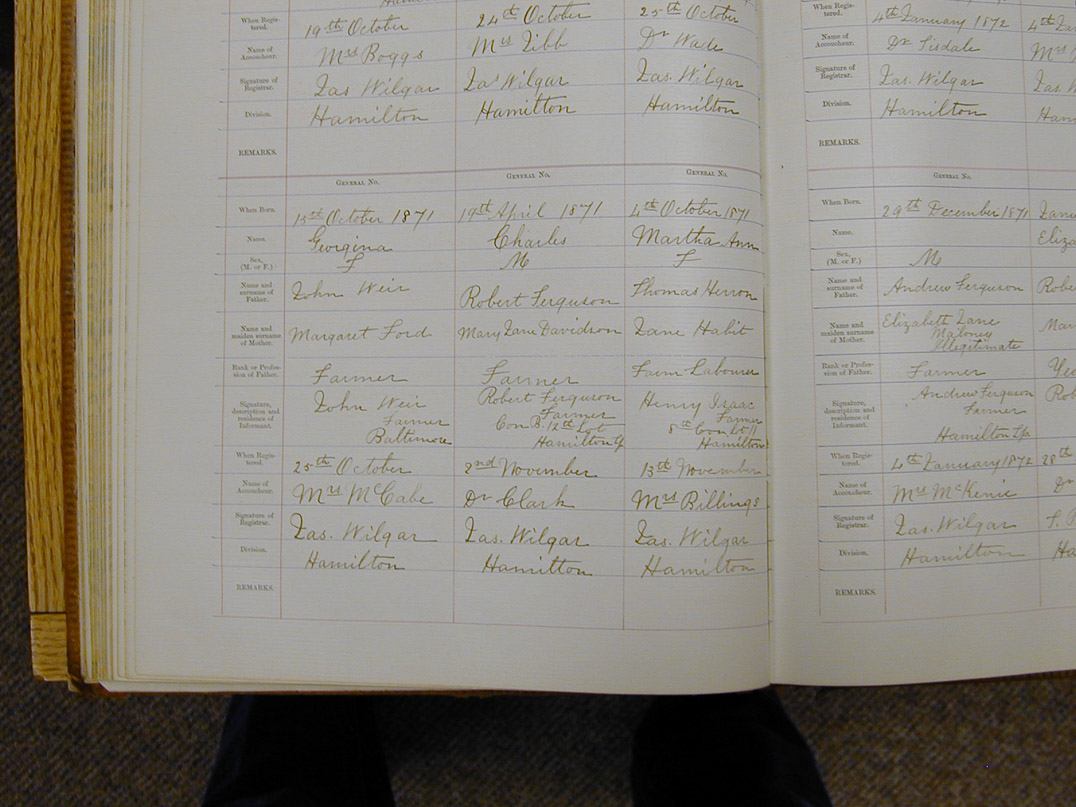 When Regis-
tered. 19th October 24th October 25th October
Name of
Accoucheur. Mrs Boggs Mrs Gibb Dr Wade
Signature of
Registrar. Jas Wilgar Jas Wilgar Jas. Wilgar
Division. Hamilton Hamilton Hamilton
REMARKS.
GENERAL NO. GENERAL NO. GENERAL NO.
When Born. 13th October 1871 19th April 1871 4th October 1871
Name. Georgina Charles Martha Ann
Sex,
(M. or F.) F M F
Name and
surname of
Father. John Weir Robert Ferguson Thomas Herron
Name and
maiden surname
of Mother. Margaret Ford Mary Jane Davidson Jane Habit
Rank or Profes-
sion of Father. Farmer Farmer Farm Labourer
Signature,
description and
residence of
Informant. John Weir
Farmer
Baltimore
Robert Ferguson
Farmer
Con B. 12th Lot
Hamilton Tp
Henry Isaac
Farmer
8th Con Lt 11
Hamilton
When Regis-
tered. 25th October 2nd November 13th November
Name of
Accoucheur. Mrs McCabe Dr Clark Mrs Billings
Signature of
Registrar. Jas. Wilgar Jas. Wilgar Jas. Wilgar
Division. Hamilton Hamilton Hamilton
REMARKS.
When Regis-
tered. 4th January 1872 4th
Name of
Accoucheur. Dr Tisdale Mrs
Signature of
Registrar. Jas. Wilgar Jas. W
Division. Hamilton Ham
REMARKS.
When Born. 29th December 1871
Name. Eliza
Sex,
(M. or F.) M
Name and
surname of
Father. Andrew Ferguson Robe
Name and
maiden surname
of Mother. Elizabeth Jane
Maloney
Illegitimate
Mar
Rank or Profes-
sion of Father. Farmer
Signature,
description and
residence of
Informant. Andrew Ferguson
Farmer
Hamilton Tp.
Rob
When Regis-
tered. 4th January 1872 28th
Name of
Accoucheur. Mrs McKenie Dr
Signature of
Registrar. Jas. Wilgar
Division. Hamilton Ha
REMARKS.